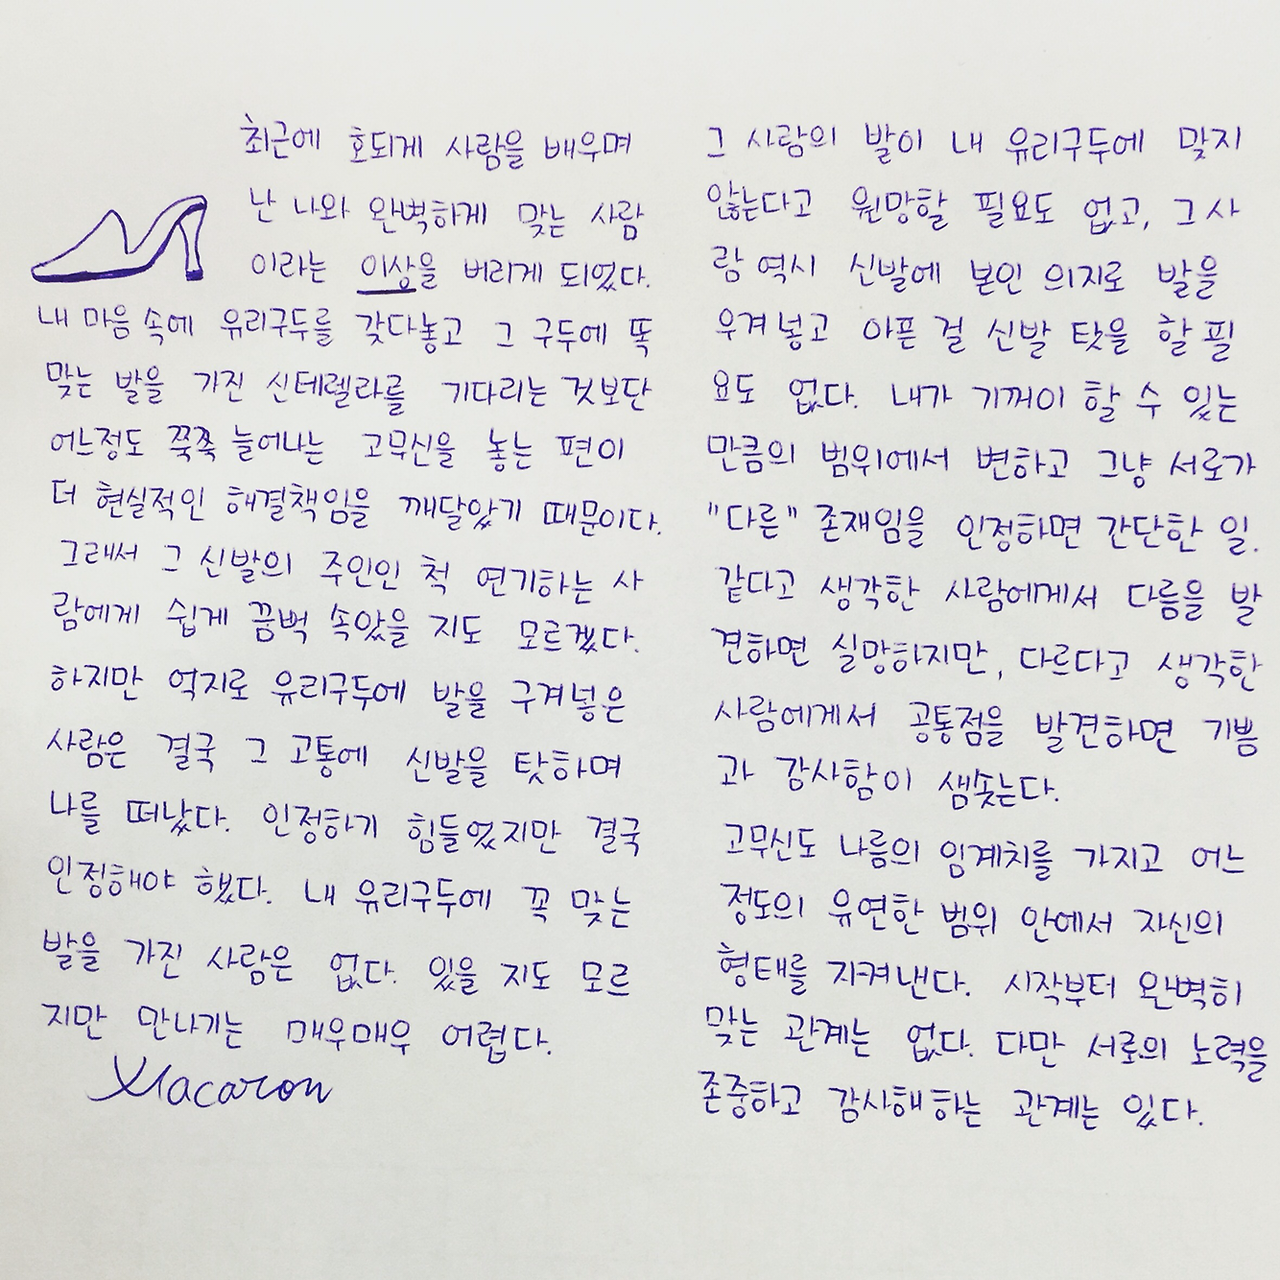 최근에 호되게 사람을 배우며
난 나와 완벽하게 맞는 사람
이라는 이상을 버리게 되었다.
내 마음 속에 유리구두를 갖다놓고 그 구두에 똑
맞는 발을 가진 신데렐라를 기다리는 것보단
어느정도 쭉쭉 늘어나는 고무신을 놓는 편이
더 현실적인 해결책임을 깨달았기 때문이다.
그래서 그 신발의 주인인 척 연기하는 사
람에게 쉽게 끔벅 속았을 지도 모르겠다.
하지만 억지로 유리구두에 발을 구겨넣은
사람은 결국 그 고통에 신발을 탓하며
나를 떠났다. 인정하기 힘들었지만 결국
인정해야 했다. 내 유리구두에 꼭 맞는
발을 가진 사람은 없다. 있을 지도 모르
지만 만나기는 매우매우 어렵다.
Macaron
그 사람의 발이 내 유리구두에 맞지
않는다고 원망할 필요도 없고, 그 사
람 역시 신발에 본인 의지로 발을
우겨넣고 아픈 걸 신발 탓을 할 필
요도 없다. 내가 기꺼이 할 수 있는
만큼의 범위에서 변하고 그냥 서로가
"다른" 존재임을 인정하면 간단한 일.
같다고 생각한 사람에게서 다름을 발
견하면 실망하지만, 다르다고 생각한
사람에게서 공통점을 발견하면 기쁨
과 감사함이 샘솟는다.
고무신도 나름의 임계치를 가지고 어느
정도의 유연한 범위 안에서 자신의
형태를 지켜낸다. 시작부터 완벽히
맞는 관계는 없다. 다만 서로의 노력을
존중하고 감사해하는 관계는 있다.